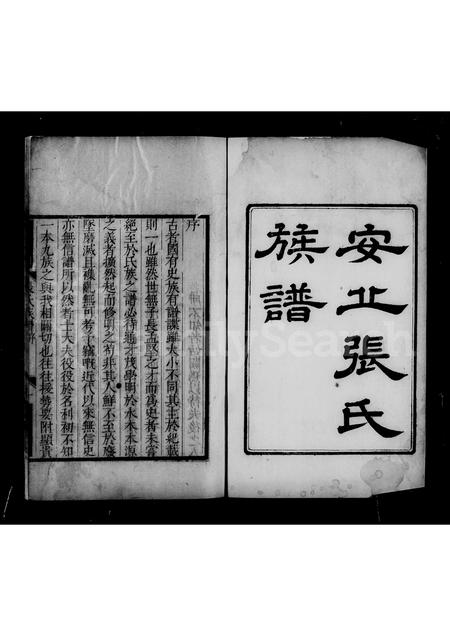 安丘張氏
族譜
序
古者國有史族有譜譜雖大小不同其主於紀載
則一也雖然世無子長孟堅之才而為史者未嘗
絕至於氏族之譜必待通才茂學明於水木本源
之義者獷然起而修明之苟非其人鮮不至於廢
墜磨滅且襍亂無可考予竊嘅近代以來無信史
亦無信譜所以然者士大夫役役於名利初不知
一本九族之與我相關切也往往援勢要附顯貴
FamilySearch